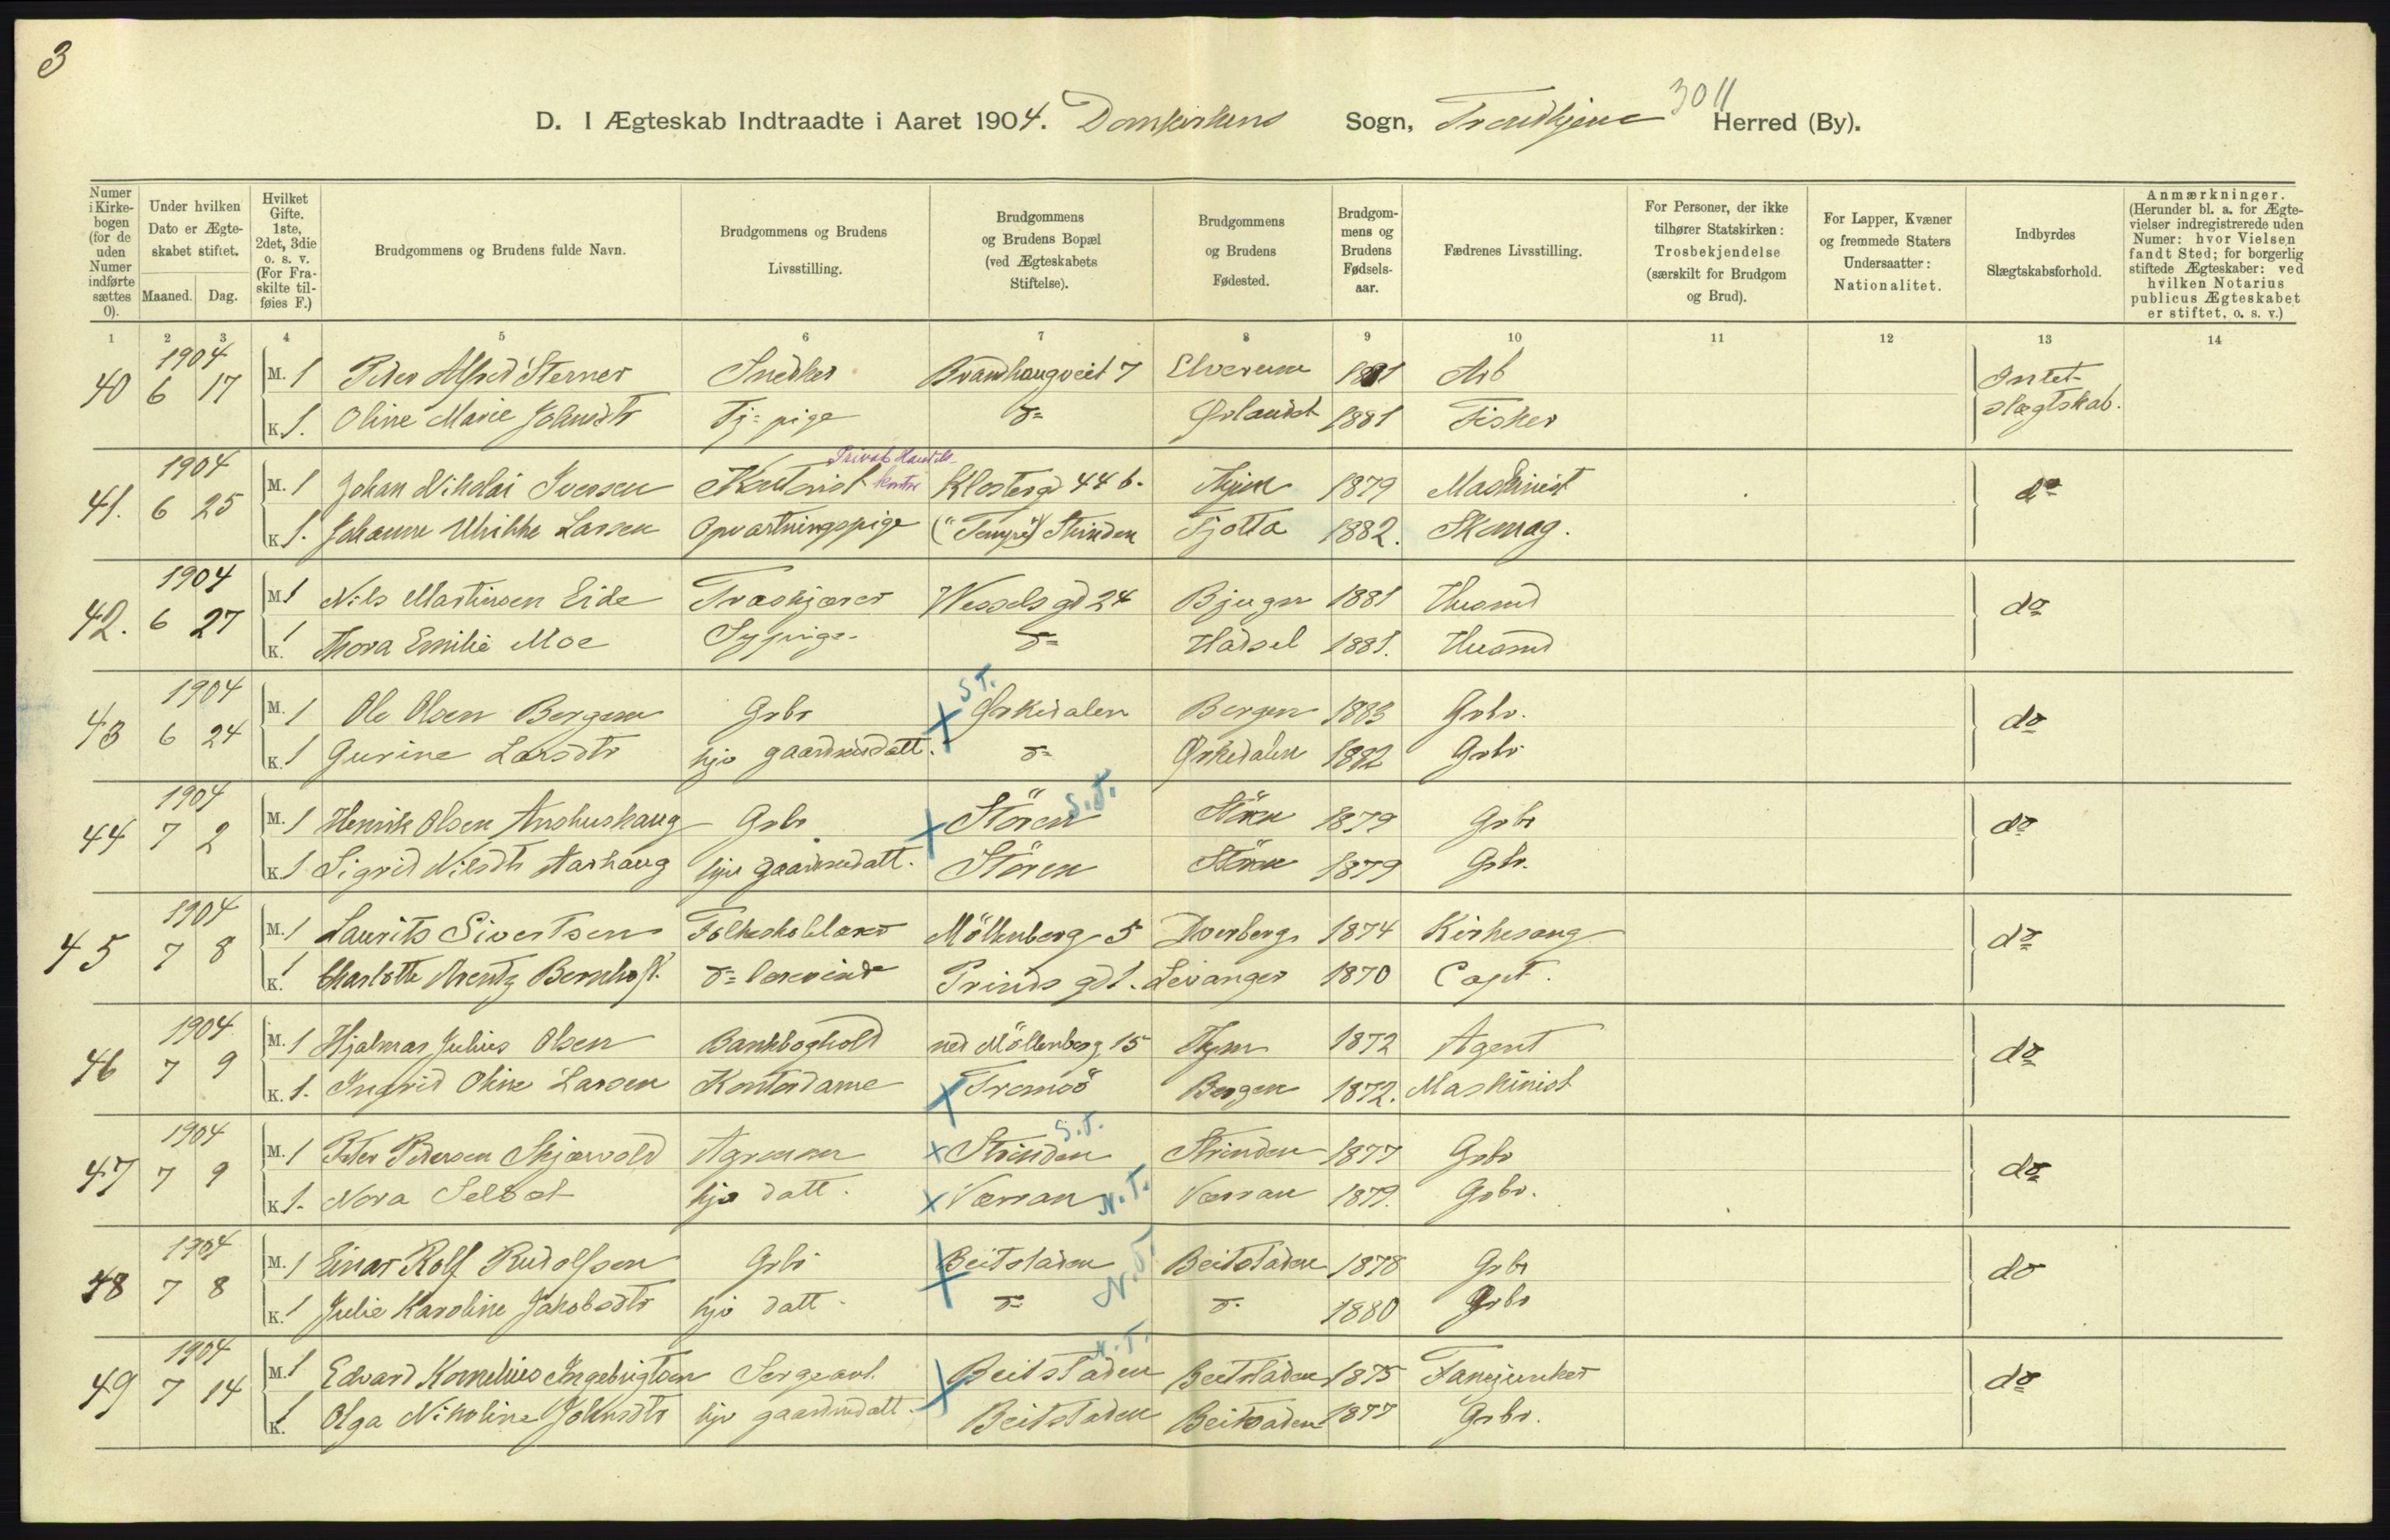 3
3011
D. I Ægteskab Indtraadte i Aaret 1904. Domkirkens Sogn, Trondhjems Herred (By).
Numer i Kirkebogen (for de uden Numer indførte sættes 0).
Under hvilken Dato er Ægteskabet stiftet.
Maaned. Dag.
Hvilket Gifte. 1ste, 2det, 3die o. s. v. (For Fraskilte tilføies F.)
Brudgommens og Brudens fulde Navn.
Brudgommens og Brudens Livsstilling.
Brudgommens og Brudens Bopæl (ved Ægteskabets Stiftelse).
Brudgommens og Brudens Fødested.
Brudgommens og Brudens Fødselsaar.
Fædrenes Livsstilling.
For Personer, der ikke tilhører Statskirken: Trosbekjendelse (særskilt for Brudgom og Brud).
For Lapper, Kvæner og fremmede Staters Undersaatter: Nationalitet.
Indbyrdes Slægtskabsforhold.
Anmærkninger. (Herunder bl. a. for Ægtevielser indregistrerede uden Numer: hvor Vielsen fandt Sted; for borgerlig stiftede Ægteskaber: ved hvilken Notarius publicus Ægteskabet er stiftet, o. s. v.)
1 2 3 4 5 6 7 8 9 10 11 12 13 14
1904
40 6 17 M. 1 Peter Alfred Sterner Snedker Brandhaugveit 7 Elverum 1881 Arb Intet
K. 1. Oline Marie Johnsdtr Tj= pige do Ørlandet 1881 Fisker slægtskab.
1904 Privat Handels
kontor
41. 6 25 M. 1 Johan Nikolai Iversen Kontorist Klosterg 44 b. Thjem 1879 Maskinist do
K. 1. Johanne Ulrikke Larsen Opvartningspige ("Tempe") Strinden Tjotta 1882. Skomag.
1904
42. 6 27 M. 1 Nils Martinsen Eide Træskjærer Wessels gd 24 Bjugn 1881 Husmd do
K. 1 Thora Emilie Moe Sypige do Hadsel 1881. Husmd
1904 S.T.
43 6 24 M. 1 Ole Olsen Bergem Grbr Ørkedalen Bergen 1883 Grbr. do
K. 1 Gurine Larsdtr hjv gaardmdatt. do Ørkedalen 1882 Grbr
1904 S.T.
44 7 2 M. 1 Henrik Olsen Anshushaug Grbr Stören Stören 1879 Grbr do
K. 1 Sigrid Nilsdtr Aarhaug hjv gaardmdatt. Stören Stören 1879 Grbr.
1904
45 7 8 M. 1 Laurits Sivertsen Folkeskolelærer Möllenberg 5 Dverberg 1874 Kirkesang do
K. 1 Charlotte Arentz Bernhoft do lærerinde Prinds gd 1. Levanger 1870 Capt.
1904
46 7 9 M. 1 Hjalmar Julius Olsen Bankboghold ned Möllenberg 15 Thjem 1872 Agent do
K. 1. Ingrid Oline Larsen Kontordame Tromsö Bergen 1872. Maskinist
1904 S.T.
47 7 9 M. 1 Peter Petersen Skjærvold Agronom Strinden Strinden 1877 Grbr do
K. 1. Nora Selbæt hjv datt. Værran N.T. Værran 1879. Grbr.
1904
48 7 8 M. 1 Einar Rolf Rudolfsen Grbr Beitstaden N.T. Beitstaden 1878 Grbr do
K. 1 Julie Karoline Jakobsdtr hjv datt. do do 1880 Grbr
1904 N.T.
49 7 14 M. 1 Edvard Kornelius Ingebrigtsen Sergeant. Beitstaden Beitstaden 1875 Fanejunker do
K. 1 Olga Nikoline Johnsdtr hjv gaardmdatt. Beitstaden Beitstaden 1877 Grbr.